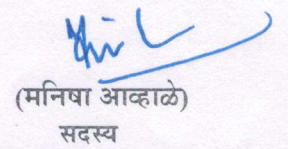 (मनिषा आव्हाळे)
सदस्य